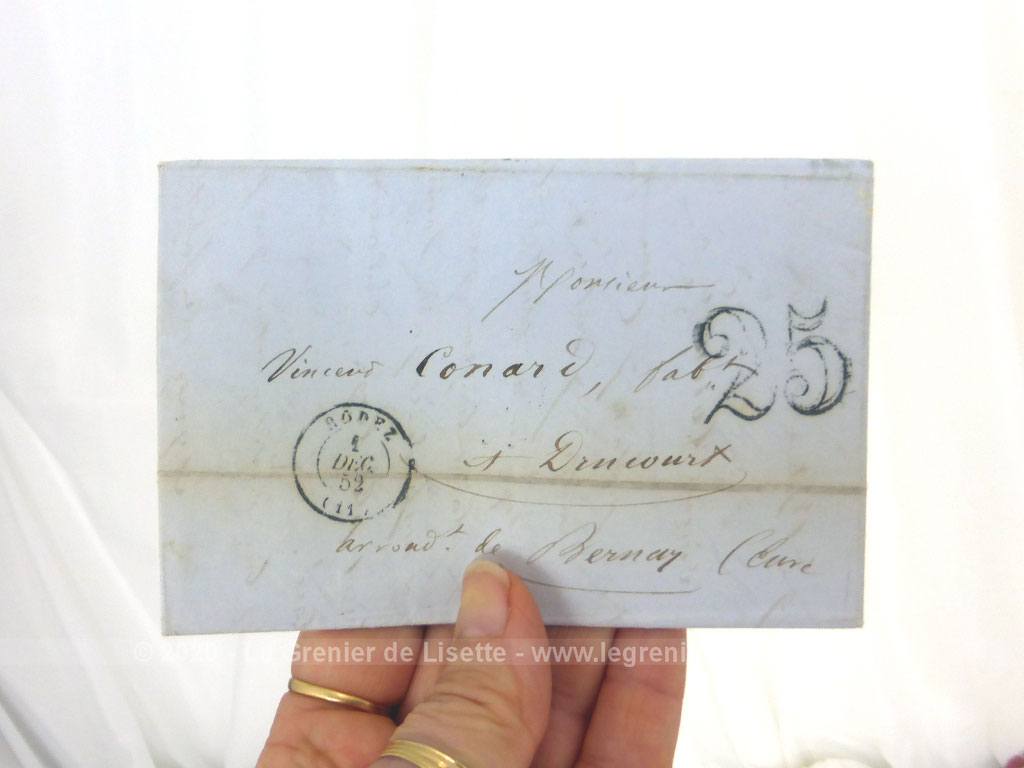 Monsieur
25
Vincent Conard, fabt
RODEZ
1
DEC.
52
(11)
à Drucourt
arrondt. de Bernay (Eure
© 2020 - Le Grenier de Lisette - www.legreni